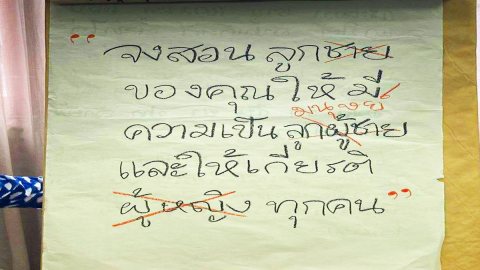 "จงสอน ลูกชาย
ของคุณ ให้ มี
มนุษย์
ความเป็น ลูกผู้ชาย
และให้เกียรติ
ผู้หญิง ทุกคน"